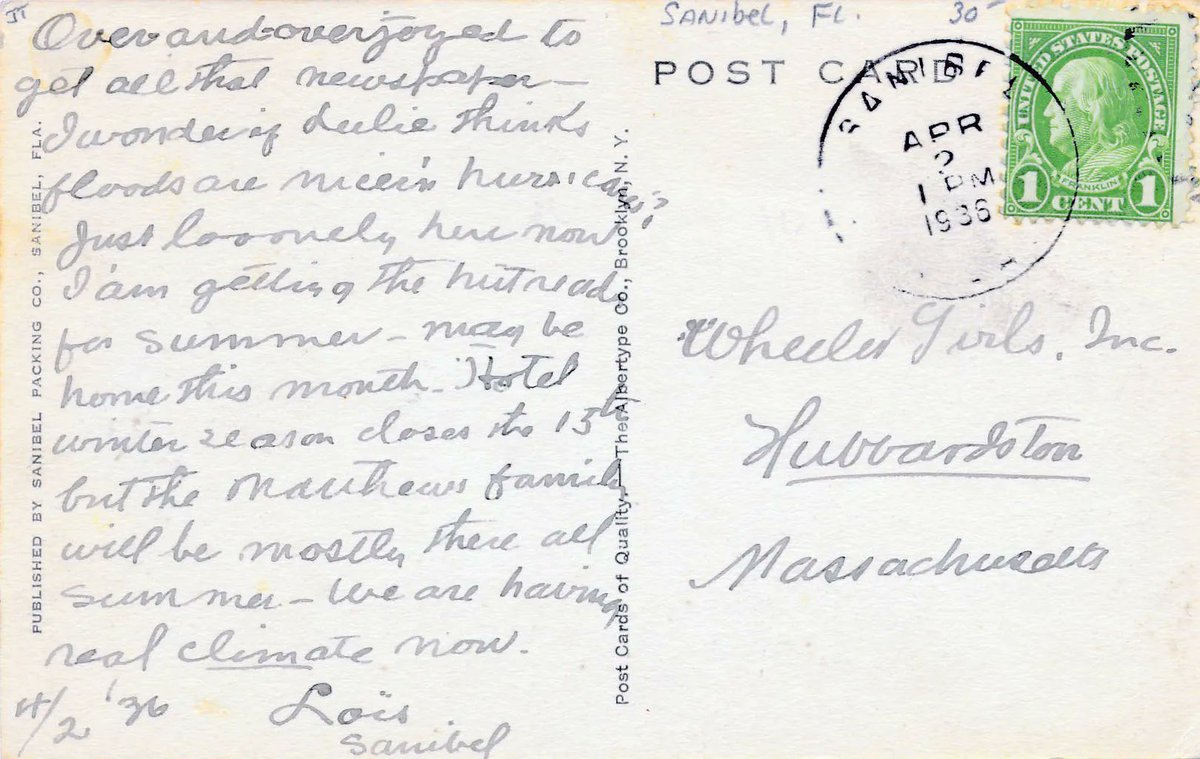 SANIBEL, FL. 30-
POST CARD
SANIBEL
APR
2
1 PM
1936
UNITED STATES POSTAGE
FRANKLIN
1 CENT 1
Over and overjoyed to
get all that newspaper —
I wonder if thinks
floods are nicer'n hurricanes?
Just looovely here now.
I am getting the hut ready
for summer — may be
home this month. Hotel
winter season closes the 15th
but the Matthews family
will be mostly there all
summer — We are having
real climate now.
4/2 '36 Lois
Sanibel
Wheeler Girls, Inc.
Hubbardston
Massachusetts
PUBLISHED BY SANIBEL PACKING CO., SANIBEL, FLA.
Post Cards of Quality. — The Albertype Co., Brooklyn, N. Y.